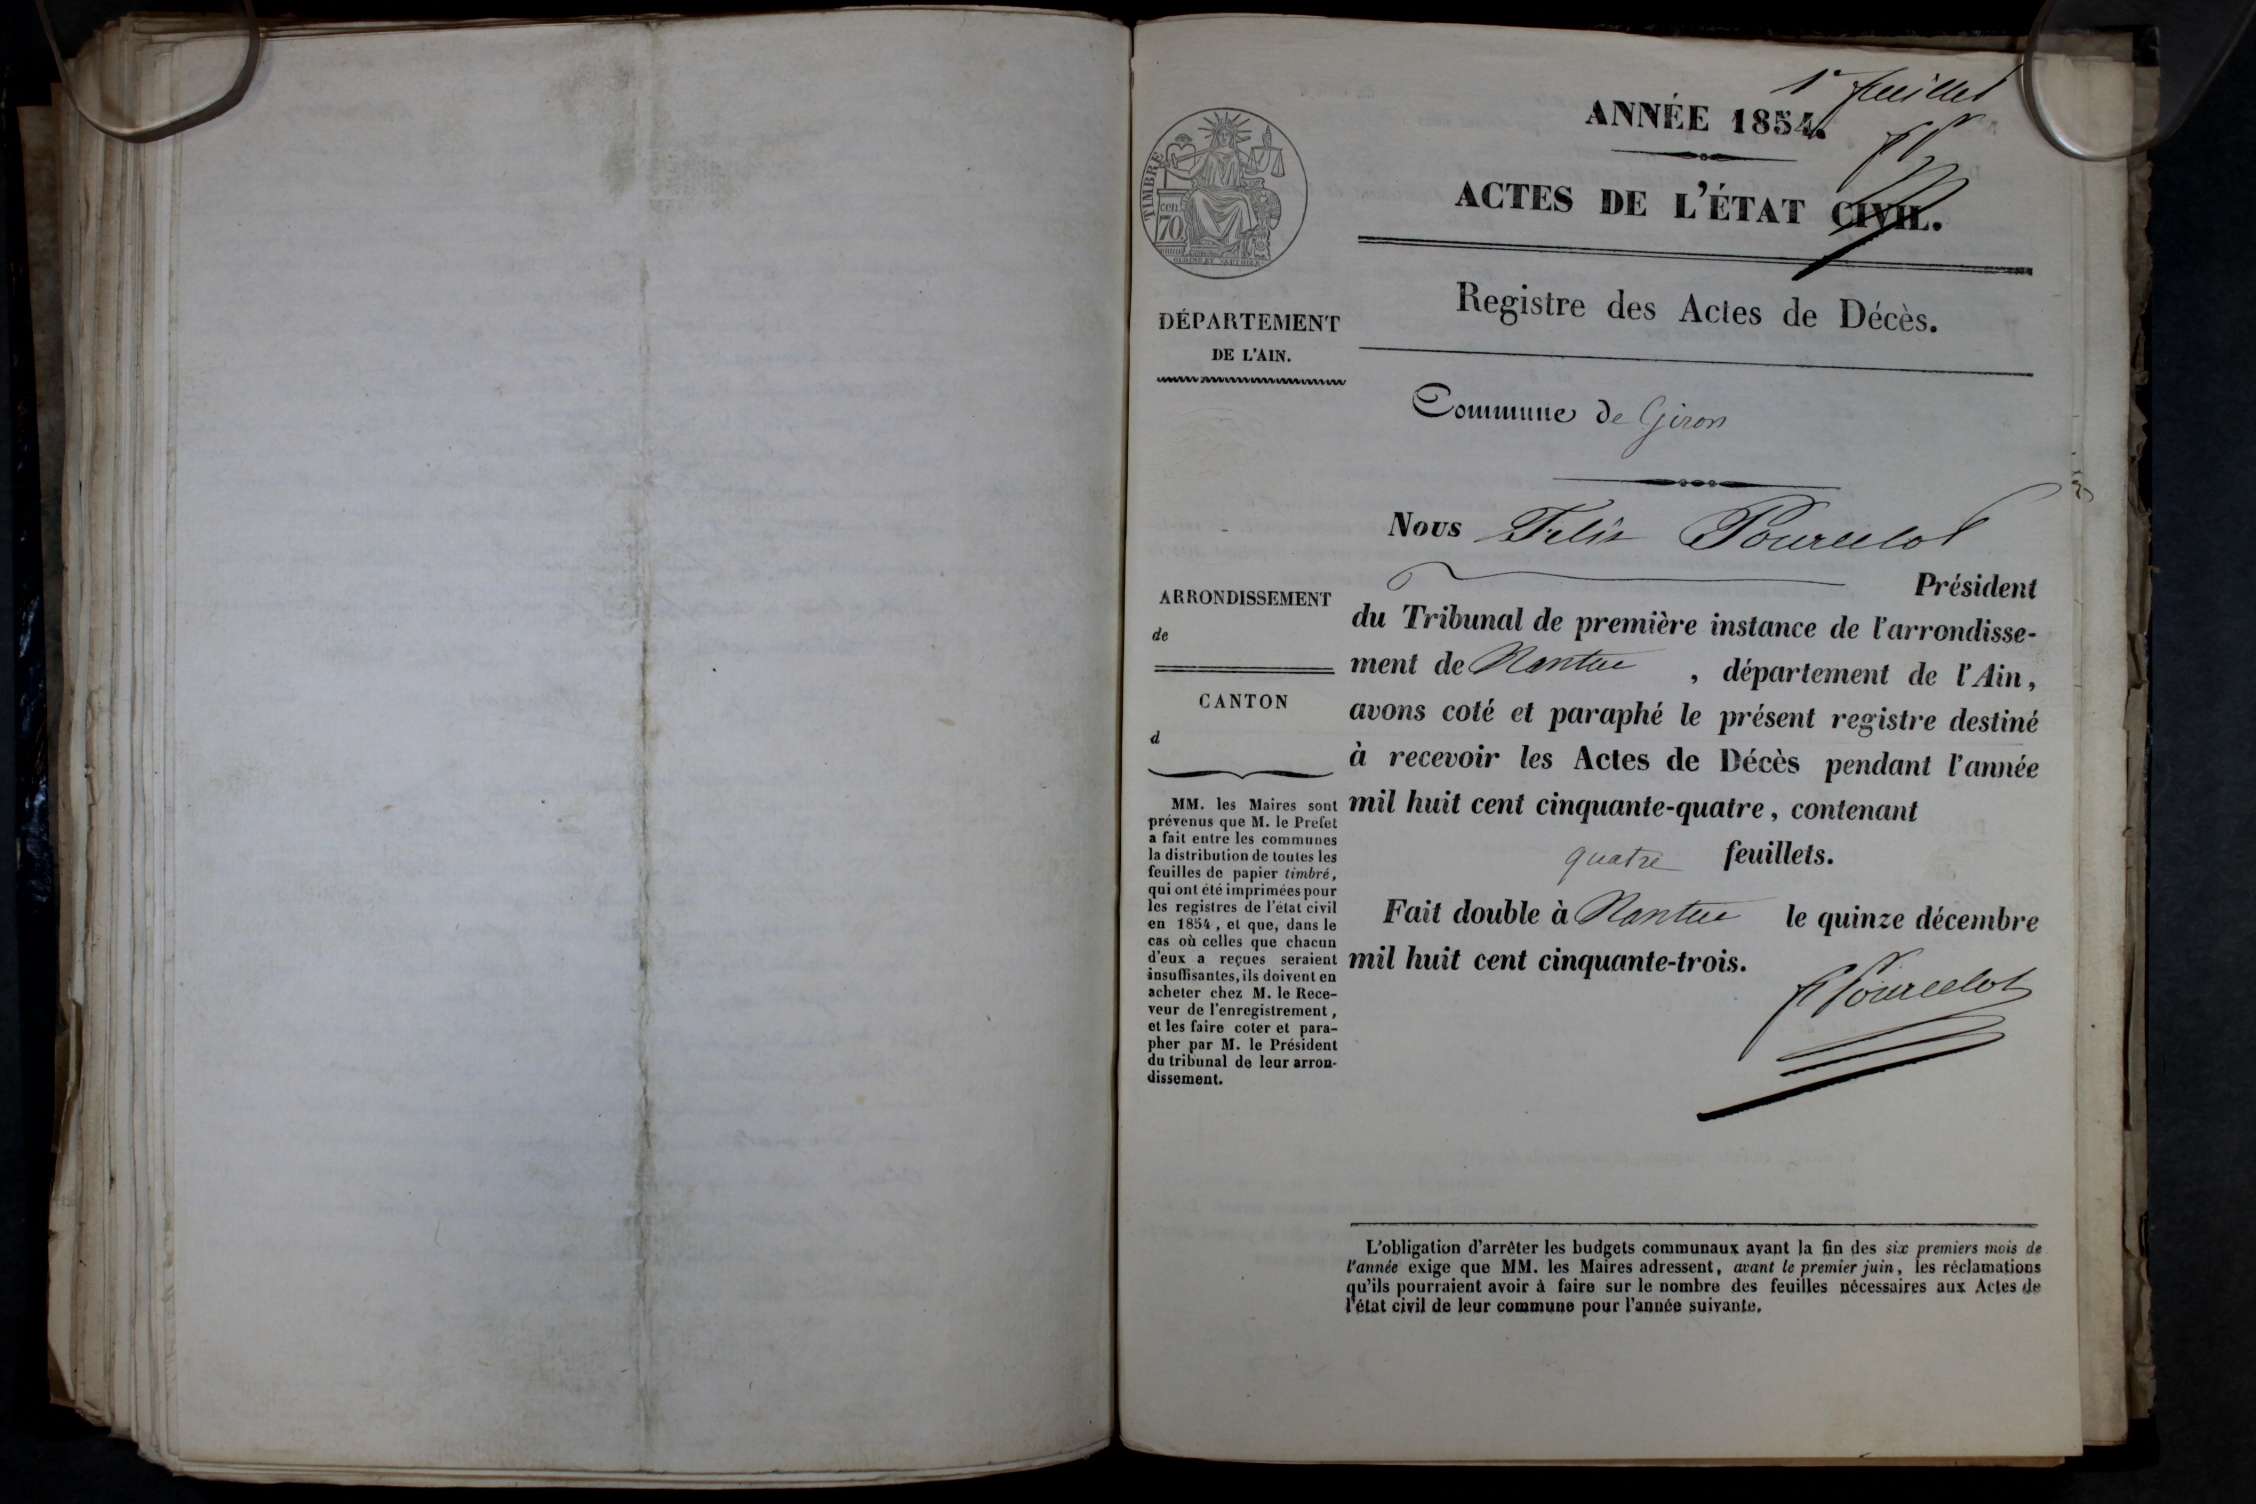 1r feuillet
ANNÉE 1854.
ACTES DE L'ÉTAT CIVIL.
Registre des Actes de Décès.
TIMBRE
cen
70
DÉPARTEMENT
DE L'AIN.
Commune de Giron
Nous Félix Pourcelot
Président
du Tribunal de première instance de l'arrondisse-
ment de Nantua , département de l'Ain,
avons coté et paraphé le présent registre destiné
à recevoir les Actes de Décès pendant l'année
mil huit cent cinquante-quatre, contenant
quatre feuillets.
Fait double à Nantua le quinze décembre
mil huit cent cinquante-trois.
F Pourcelot
ARRONDISSEMENT
de
CANTON
d
MM. les Maires sont
prévenus que M. le Prefet
a fait entre les communes
la distribution de toutes les
feuilles de papier timbré,
qui ont été imprimées pour
les registres de l'état civil
en 1854, et que, dans le
cas où celles que chacun
d'eux a reçues seraient
insuffisantes, ils doivent en
acheter chez M. le Rece-
veur de l'enregistrement,
et les faire coter et para-
pher par M. le Président
du tribunal de leur arron-
dissement.
L'obligation d'arrêter les budgets communaux avant la fin des six premiers mois de
l'année exige que MM. les Maires adressent, avant le premier juin, les réclamations
qu'ils pourraient avoir à faire sur le nombre des feuilles nécessaires aux Actes de
l'état civil de leur commune pour l'année suivante.